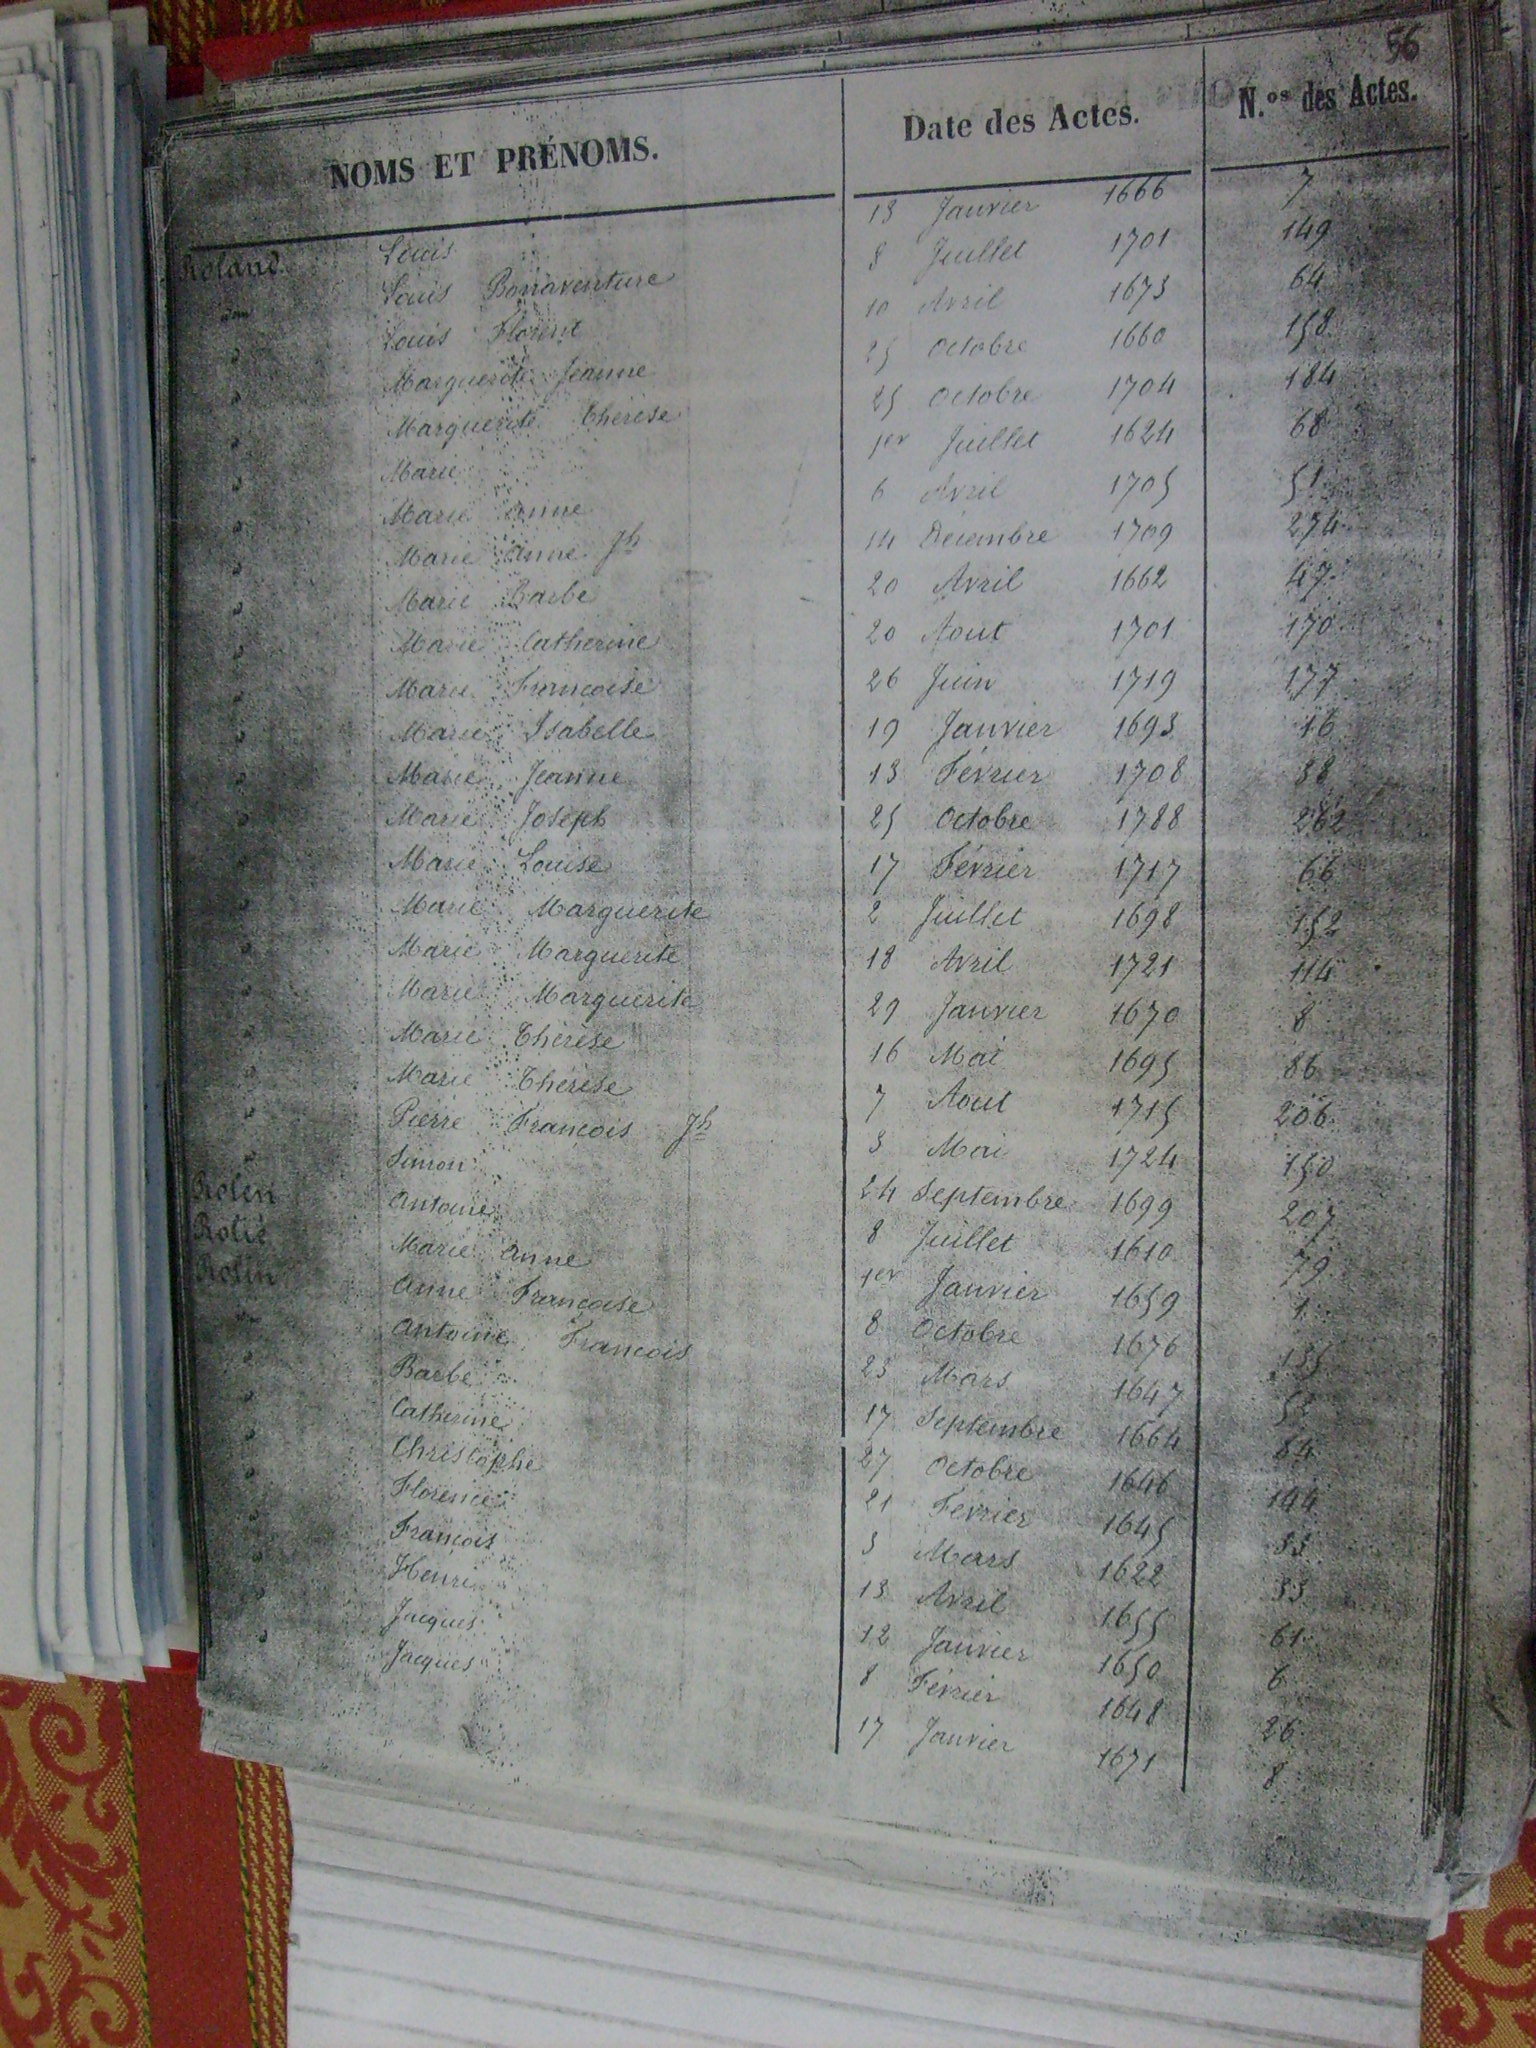 56
NOMS ET PRÉNOMS. Date des Actes. N.os des Actes.
Roland Louis 13 Janvier 1666 7
" Louis Bonaventure 8 Juillet 1701 149
" Louis Florent 10 Avril 1673 64
" Marguerite Jeanne 25 octobre 1660 158
" Marguerite Thérèse 25 octobre 1704 184
" Marie 1er Juillet 1624 68
" Marie Anne 6 Avril 1705 51
" Marie Anne Jh 14 Décembre 1709 274
" Marie Barbe 20 Avril 1662 47
" Marie Catherine 20 Aout 1701 170
" Marie Francoise 26 Juin 1719 177
" Marie Isabelle 19 Janvier 1693 16
" Marie Jeanne 13 Février 1708 38
" Marie Joseph 25 octobre 1788 262
" Marie Louise 17 Février 1717 66
" Marie Marguerite 2 Juillet 1698 152
" Marie Marguerite 18 Avril 1721 114
" Marie Marguerite 29 Janvier 1670 8
" Marie Thérèse 16 Mai 1695 86
" Marie Thérèse 7 Aout 1715 206
" Pierre Francois Jh 3 Mai 1724 150
" Simon 24 Septembre 1699 207
Rolen Antoine 8 Juillet 1610 79
Rolié Marie Anne 1er Janvier 1659 1
Rolin Anne Francoise 8 octobre 1676 135
" Antoine Francois 23 Mars 1647
" Barbe 17 Septembre 1664 84
" Catherine 27 octobre 1646 144
" Christophe 21 Février 1645 33
" Florence 3 Mars 1622 33
" Francois 13 Avril 1655 61
" Henri 12 Janvier 1650 6
" Jacques 8 Février 1648 26
" Jacques 17 Janvier 1671 8